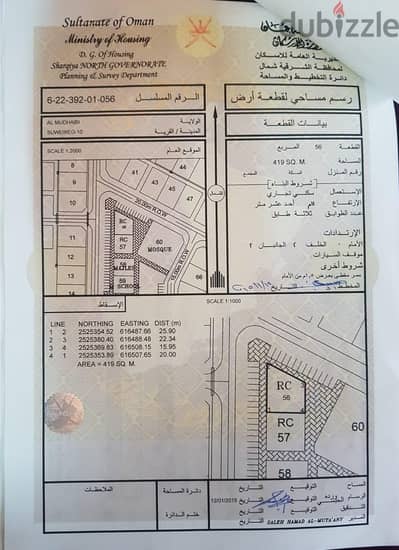 Sultanate of Oman
Ministry of Housing
D. G. Of Housing
Sharqiya NORTH GOVERNORATE
Planning & Survey Department
dubizzle
المديرية العامة للاسكان
لمحافظة الشرقية شمال
دائرة التخطيط والمساحة
6-22-392-01-056
الرقم المسلسل
رسم مساحي لقطعة أرض
AL MUDHAIBI
الولاية
SLWE8REG.10
المدينة / القرية
SCALE 1:2000
الموقع العام
بيانات القطعة
القطعة 56 المربع
المساحة 419 SQ. M.
رقم المنزل السكة المجمع
شروط البناء
الاستعمال سكني تجاري
الإرتفاع أحد عشر متر
عدد الطوابق ثلاثة طابق
الإرتدادات
الأمام ٠ الخلف ٢ الجانبان ٢
موقف السيارات
شروط أخرى
المخطط التاريخ
RC
56
RC
57
58
59
60
MOSQUE
MALES
SCHOOL
66
20.00m R.O.W
الإسقاط
SCALE 1:1000
LINE NORTHING EASTING DIST (m)
1 2 2525354.52 616487.66 25.90
2 3 2525380.40 616488.48 22.34
3 4 2525369.83 616508.15 15.95
4 1 2525353.89 616507.65 20.00
AREA = 419 SQ. M.
RC
56
RC
57
58
60
الملاحظات
دائرة المساحة
ختم الدائرة
المساح التوقيع التاريخ
الرسام التوقيع التاريخ 12/01/2015
التدقيق التوقيع التاريخ
المدير SALEH HAMAD AL-MUTA'ANY